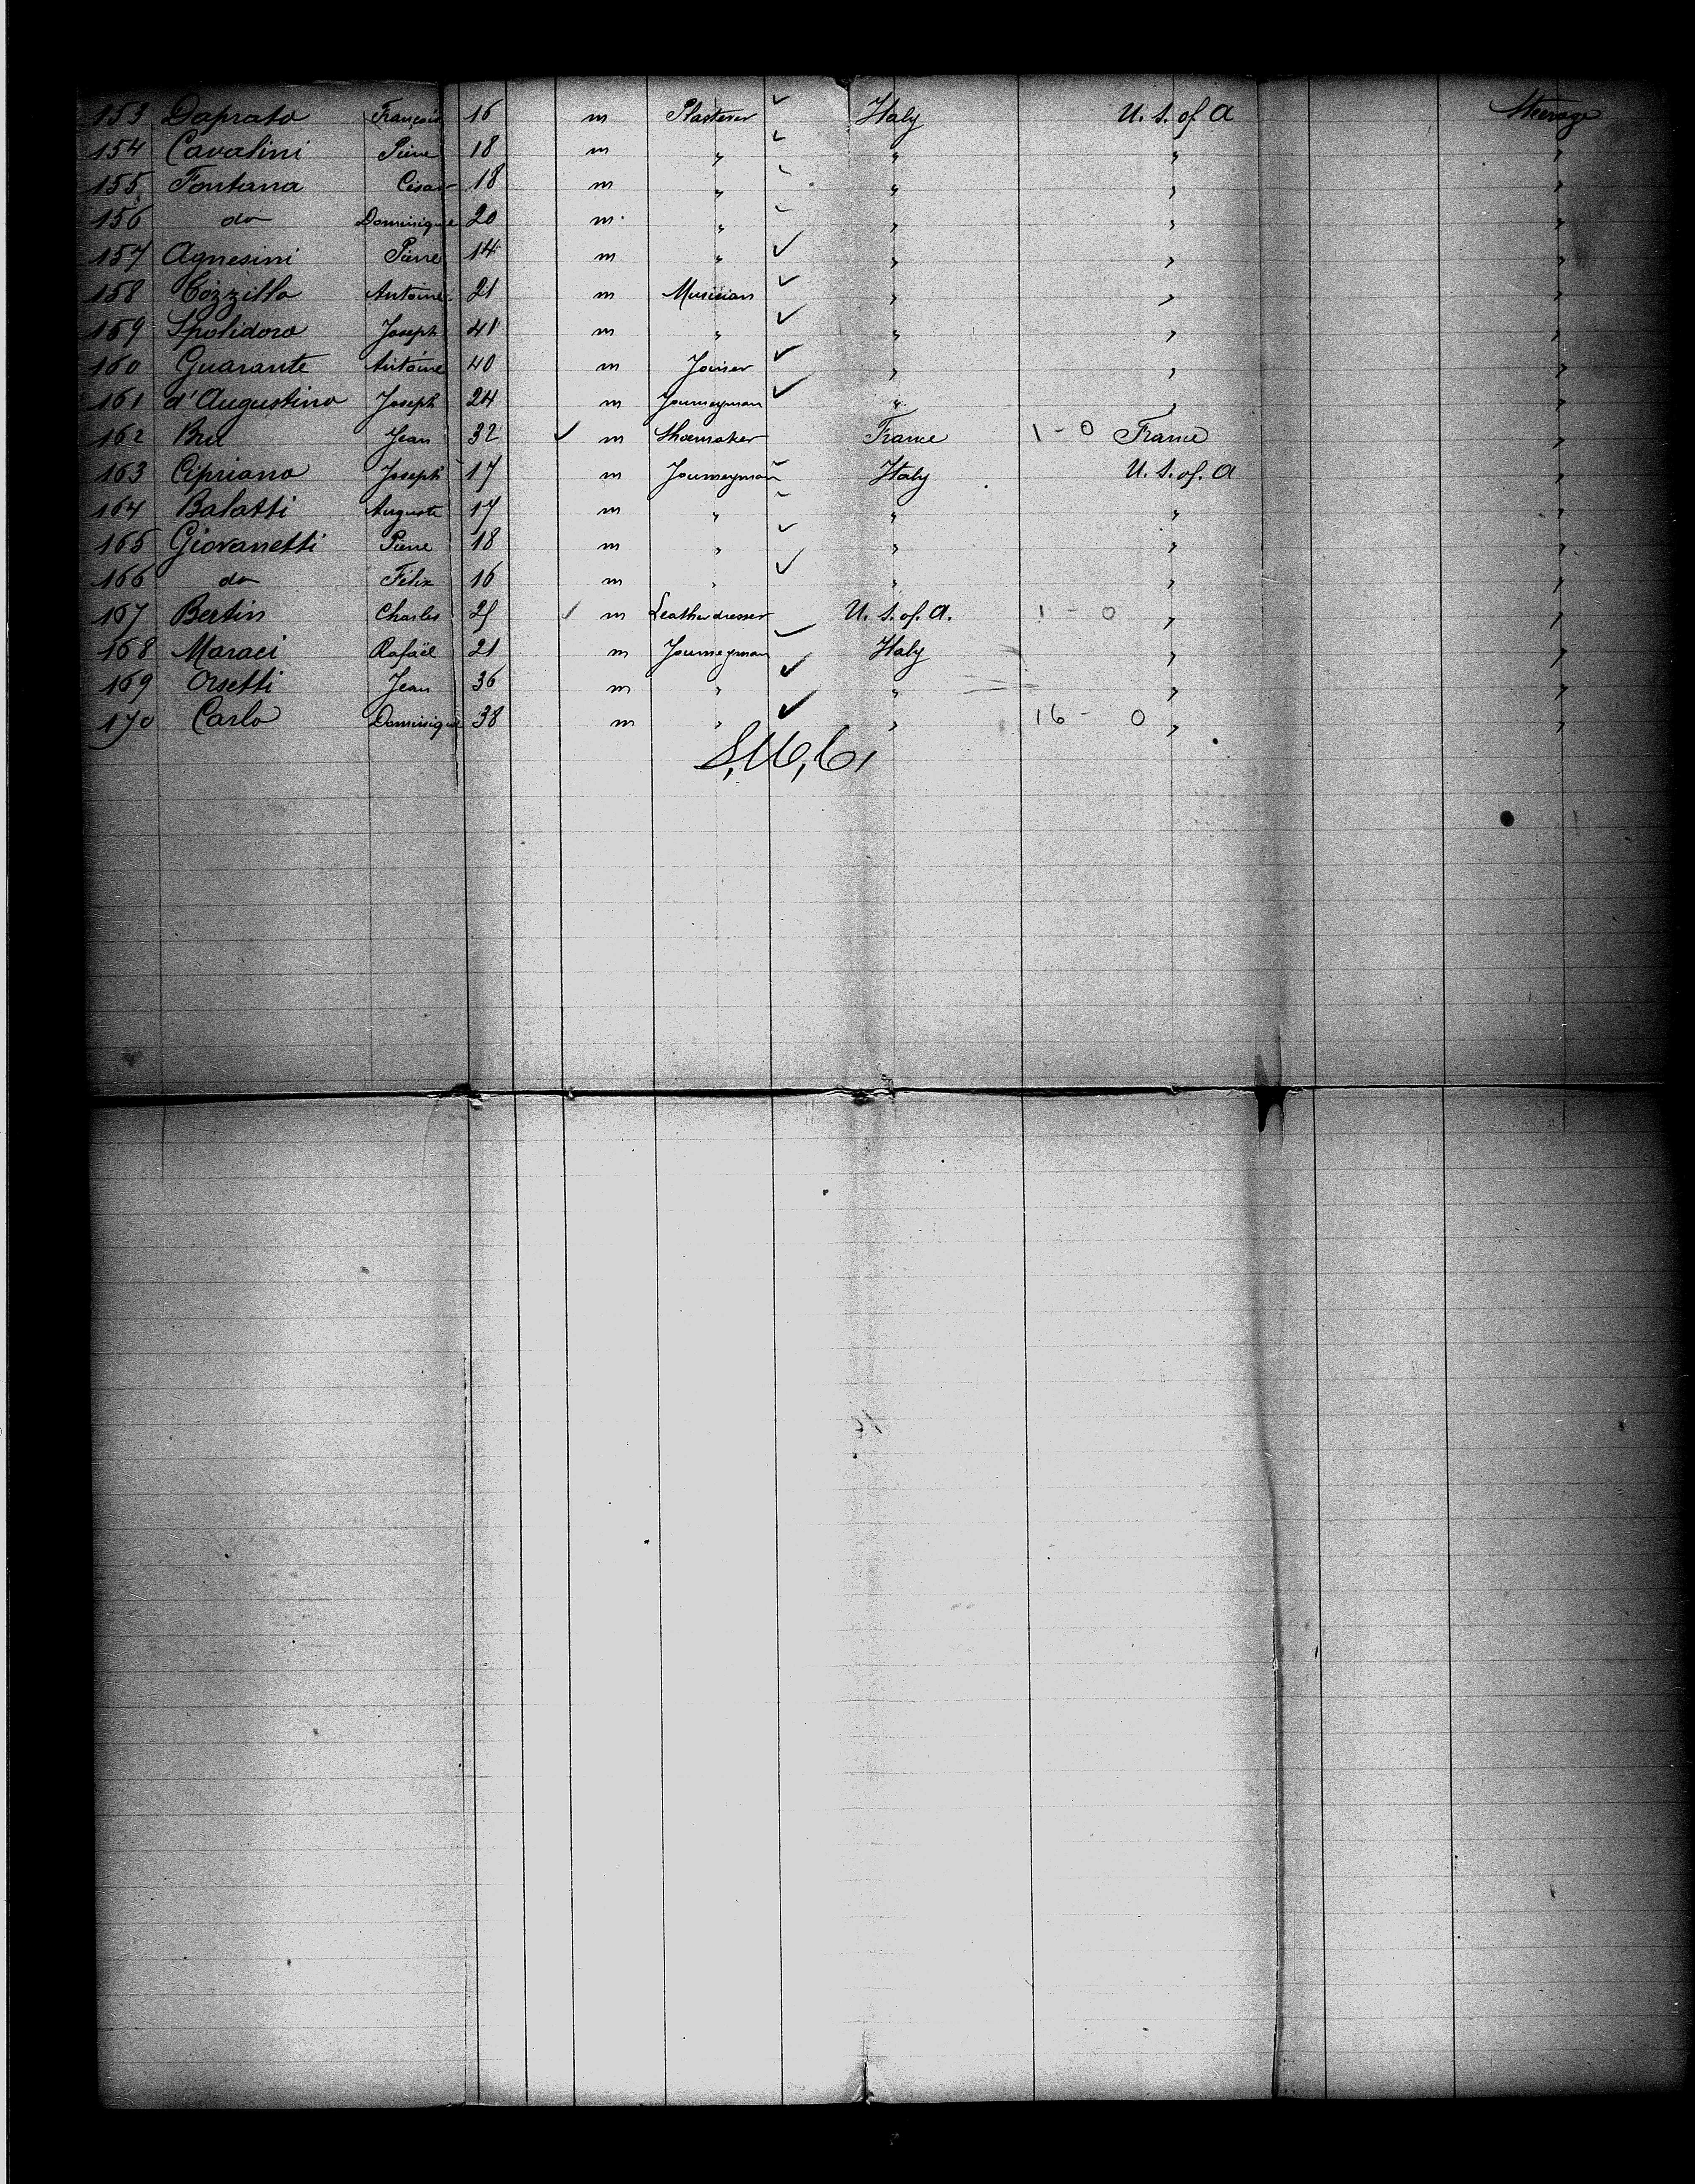 153 Daprato François 16 m Plasterer ✓ Italy U. S. of A Steerage
154 Cavalini Pierre 18 m " ✓ " " "
155 Fontana César 18 m " ✓ " " "
156 do Dominique 20 m " ✓ " " "
157 Agnesini Pierre 14 m " ✓ " " "
158 Cozzillo Antoine 21 m Musician ✓ " " "
159 Spolidoro Joseph 41 m " ✓ " " "
160 Guarante Antoine 40 m Joiner ✓ " " "
161 d'Augustino Joseph 24 m Journeyman ✓ " " "
162 Bru Jean 32 ✓ m Shoemaker France 1 - 0 France "
163 Cipriano Joseph 17 m Journeyman ✓ Italy U. S. of. A "
164 Balatti Auguste 17 m " ✓ " " "
165 Giovanetti Pierre 18 m " ✓ " " "
166 do Félix 16 m " ✓ " " "
167 Bertin Charles ✓ m Leatherdresser U. S. of. A. 1 - 0 " "
168 Maraci Rafaël 21 m Journeyman ✓ Italy " "
169 Orsetti Jean 36 m " ✓ " " "
170 Carlo Dominique 38 m " ✓ " 16 - 0 " "